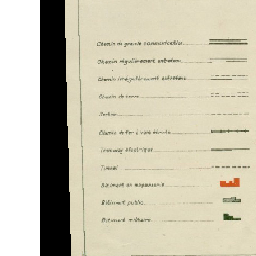 Chemin de grande communication
Chemin régulièrement entretenu
Chemin irrégulièrement entretenu
Chemin de terre
Sentier
Chemin de fer à voie étroite
Tramway électrique
Tunnel
Bâtiment en maçonnerie
Bâtiment public
Bâtiment militaire